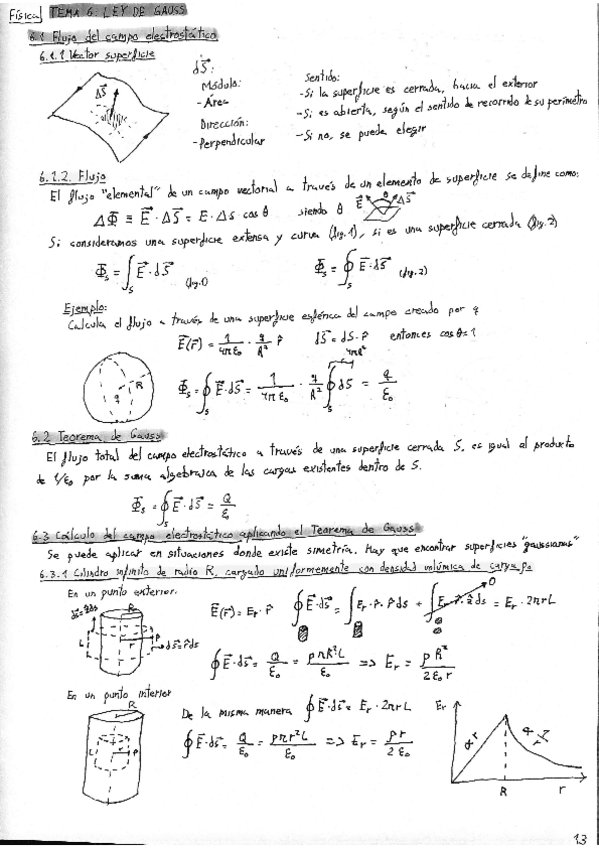 Física TEMA 6. LEY DE GAUSS
6.1 Flujo del campo electrostático
6.1.1 Vector superficie
ΔS⃗
dS⃗:
Módulo:
-Área
Dirección:
-Perpendicular
Sentido:
-Si la superficie es cerrada, hacia el exterior
-Si es abierta, según el sentido de recorrido de su perímetro
-Si no, se puede elegir
6.1.2. Flujo
El flujo "elemental" de un campo vectorial a través de un elemento de superficie se define como:
ΔΦ ≡ E⃗ · ΔS⃗ = E · Δs · cos θ siendo θ E⃗ θ ΔS⃗
Si consideramos una superficie extensa y curva (fig. 1), si es una superficie cerrada (fig. 2)
Φ_s = ∫_S E⃗ · dS⃗ (fig. 1) Φ_s = ∮_S E⃗ · dS⃗ (fig. 2)
Ejemplo:
Calcula el flujo a través de una superficie esférica del campo creado por q
E⃗(r⃗) = 1/4πε₀ · q/R² r̂ dS⃗ = dS · r̂ entonces cos θ = 1
R q
Φ_s = ∮_S E⃗ · dS⃗ = 1/4πε₀ · q/R² ∮_S dS = q/ε₀
4πR²
6.2 Teorema de Gauss
El flujo total del campo electrostático a través de una superficie cerrada S, es igual al producto
de 1/ε₀ por la suma algebraica de las cargas existentes dentro de S.
Φ_s = ∮_S E⃗ · dS⃗ = Q/ε₀
6.3 Cálculo del campo electrostático aplicando el Teorema de Gauss
Se puede aplicar en situaciones donde existe simetría. Hay que encontrar superficies "gaussianas"
6.3.1 Cilindro infinito de radio R, cargado uniformemente con densidad volúmica de carga ρ₀
En un punto exterior.
R L r P dS⃗ = r̂ ds
E⃗(r⃗) = E_r · r̂ ∮ E⃗ · dS⃗ = ∫ E_r · r̂ · r̂ ds + ∫ E_r · r̂ · ẑ ds 0 = E_r · 2πrL
∮ E⃗ · dS⃗ = Q/ε₀ = ρπR²L/ε₀ => E_r = ρR²/2ε₀r
En un punto interior
R L P
De la misma manera ∮ E⃗ · dS⃗ = E_r · 2πrL
∮ E⃗ · dS⃗ = Q/ε₀ = ρπr²L/ε₀ => E_r = ρr/2ε₀
E_r
α r
α 1/r
R r
13